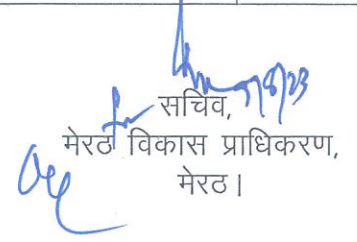 7/8/23
सचिव,
मेरठ विकास प्राधिकरण,
मेरठ।